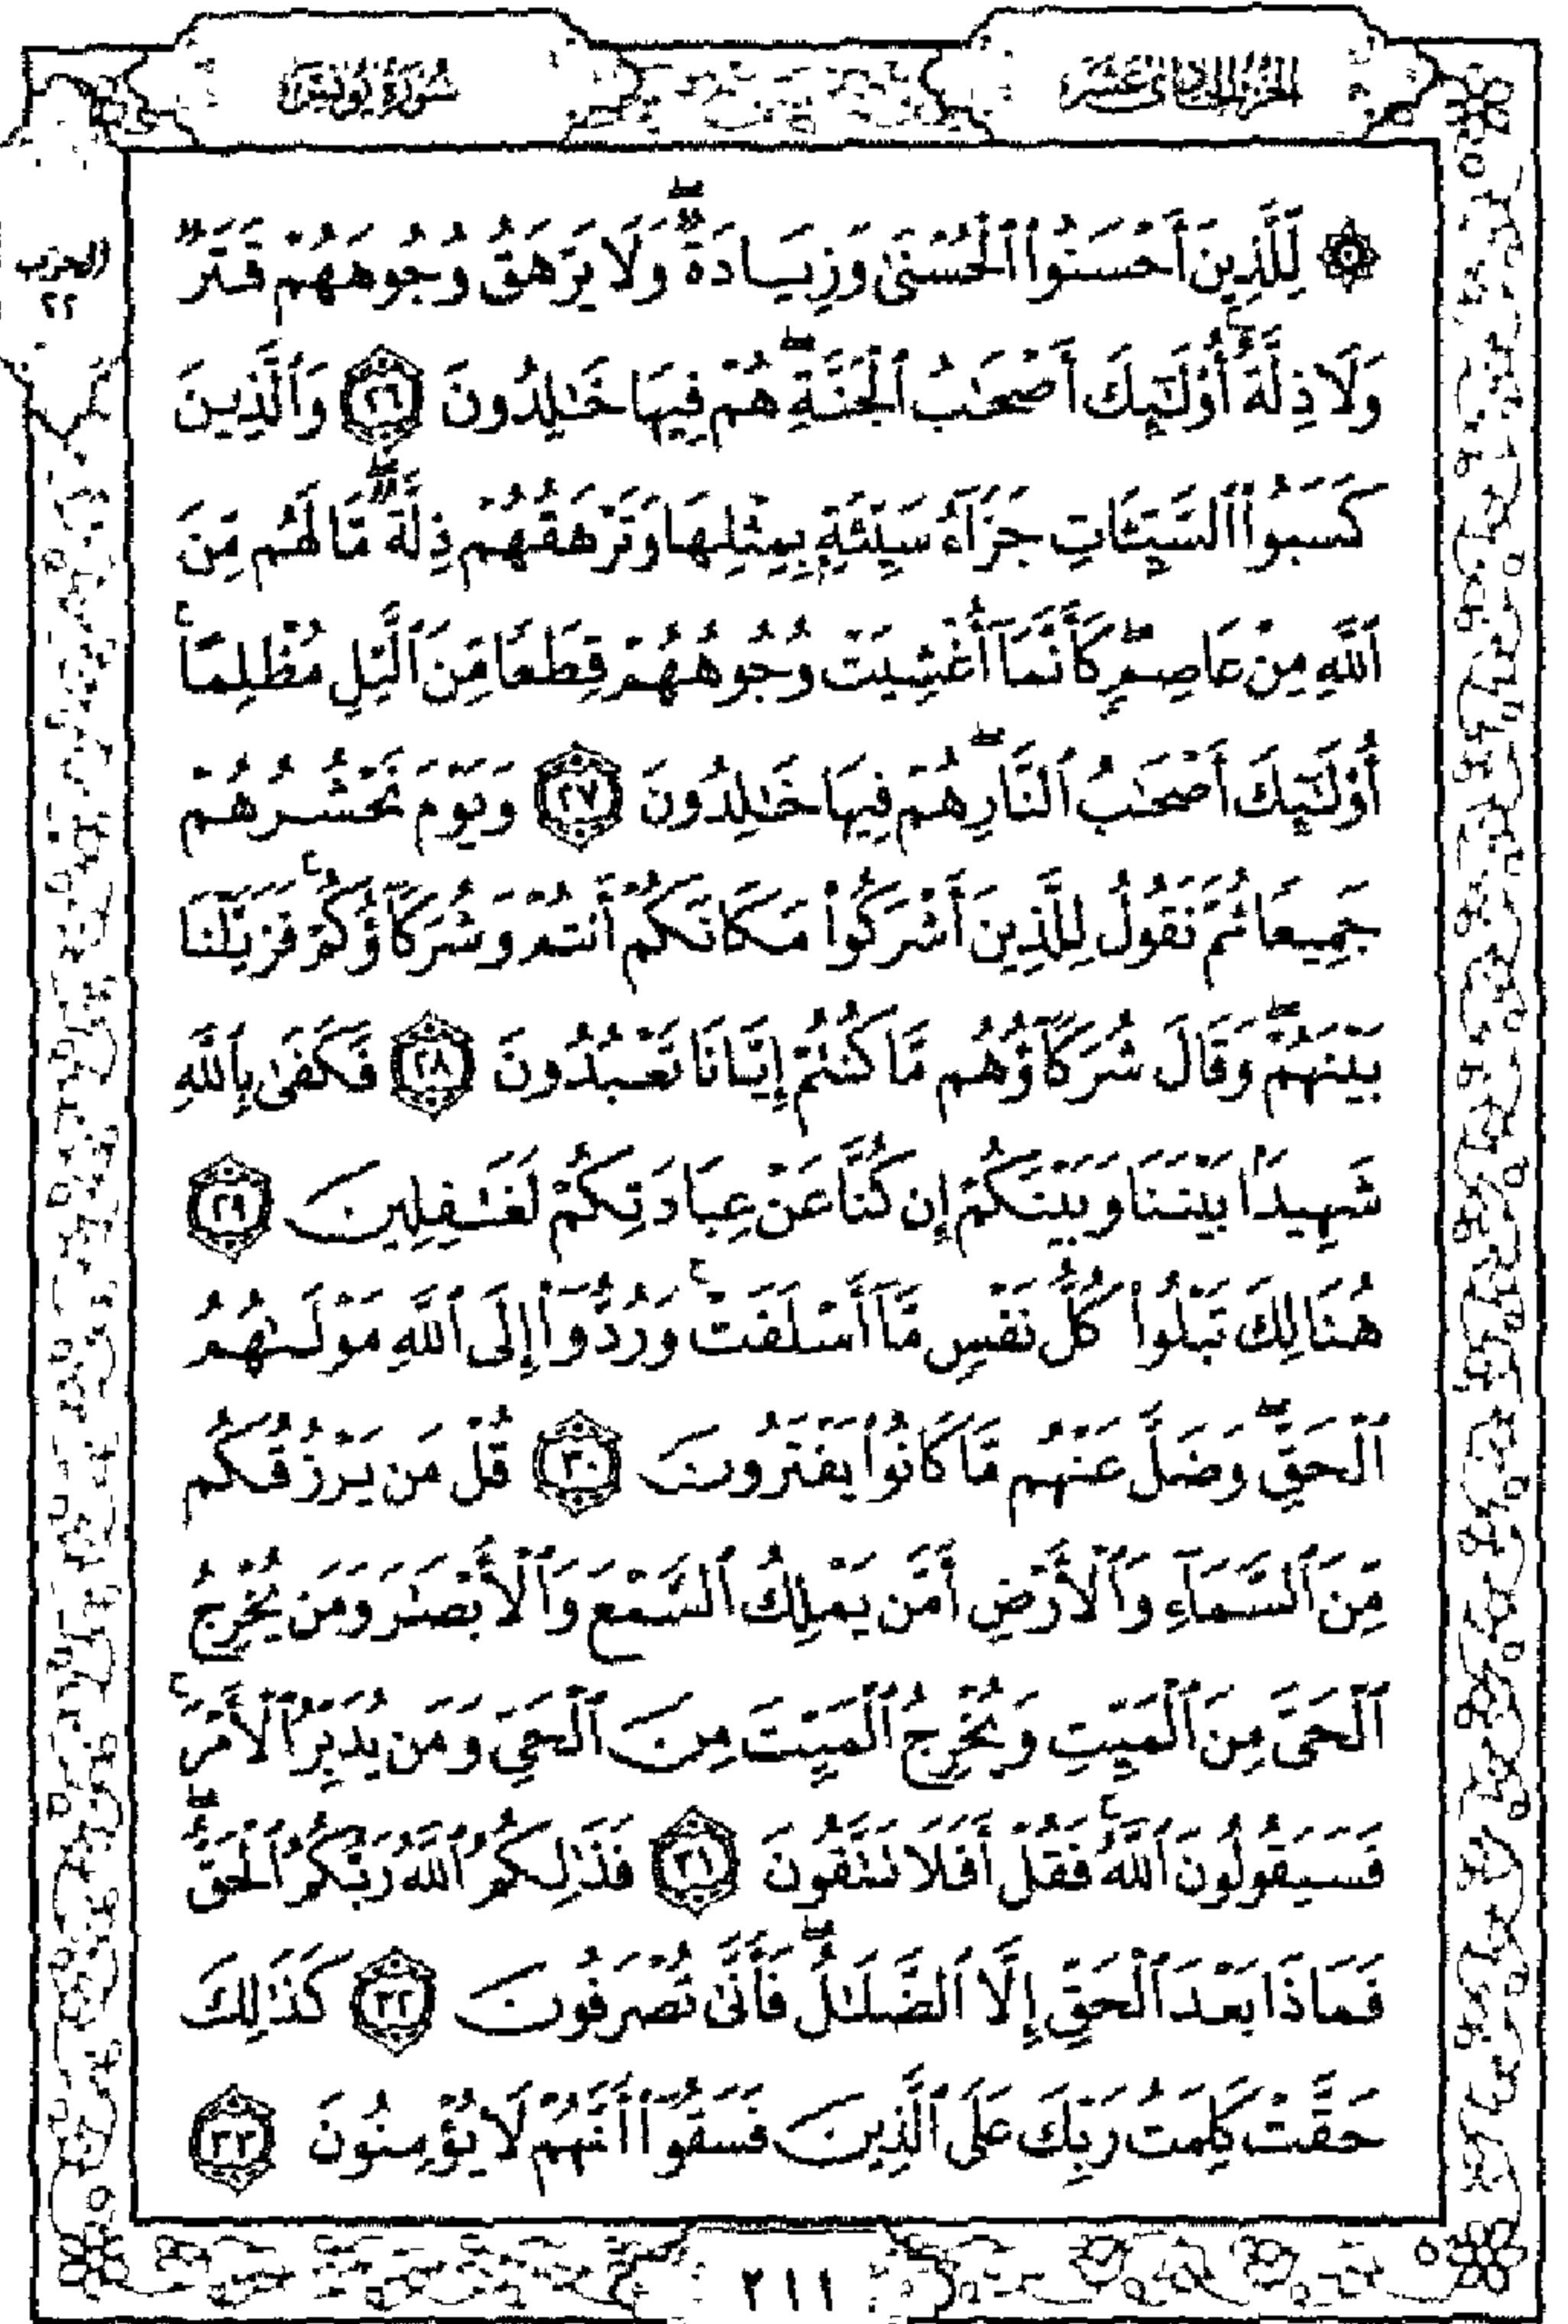 الجزء الحادي عشر
سورة يونس
الحزب
٢٢
۞ لِّلَّذِينَ أَحْسَنُوا۟ ٱلْحُسْنَىٰ وَزِيَادَةٌ ۖ وَلَا يَرْهَقُ وُجُوهَهُمْ قَتَرٌ
وَلَا ذِلَّةٌ ۚ أُو۟لَٰٓئِكَ أَصْحَٰبُ ٱلْجَنَّةِ ۖ هُمْ فِيهَا خَٰلِدُونَ ٢٦ وَٱلَّذِينَ
كَسَبُوا۟ ٱلسَّيِّـَٔاتِ جَزَآءُ سَيِّئَةٍۭ بِمِثْلِهَا وَتَرْهَقُهُمْ ذِلَّةٌ ۖ مَّا لَهُم مِّنَ
ٱللَّهِ مِنْ عَاصِمٍ ۖ كَأَنَّمَآ أُغْشِيَتْ وُجُوهُهُمْ قِطَعًا مِّنَ ٱلَّيْلِ مُظْلِمًا ۚ
أُو۟لَٰٓئِكَ أَصْحَٰبُ ٱلنَّارِ ۖ هُمْ فِيهَا خَٰلِدُونَ ٢٧ وَيَوْمَ نَحْشُرُهُمْ
جَمِيعًا ثُمَّ نَقُولُ لِلَّذِينَ أَشْرَكُوا۟ مَكَانَكُمْ أَنتُمْ وَشُرَكَآؤُكُمْ ۚ فَزَيَّلْنَا
بَيْنَهُمْ ۖ وَقَالَ شُرَكَآؤُهُم مَّا كُنتُمْ إِيَّانَا تَعْبُدُونَ ٢٨ فَكَفَىٰ بِٱللَّهِ
شَهِيدًۢا بَيْنَنَا وَبَيْنَكُمْ إِن كُنَّا عَنْ عِبَادَتِكُمْ لَغَٰفِلِينَ ٢٩
هُنَالِكَ تَبْلُوا۟ كُلُّ نَفْسٍ مَّآ أَسْلَفَتْ ۚ وَرُدُّوٓا۟ إِلَى ٱللَّهِ مَوْلَىٰهُمُ
ٱلْحَقِّ ۖ وَضَلَّ عَنْهُم مَّا كَانُوا۟ يَفْتَرُونَ ٣٠ قُلْ مَن يَرْزُقُكُم
مِّنَ ٱلسَّمَآءِ وَٱلْأَرْضِ أَمَّن يَمْلِكُ ٱلسَّمْعَ وَٱلْأَبْصَٰرَ وَمَن يُخْرِجُ
ٱلْحَىَّ مِنَ ٱلْمَيِّتِ وَيُخْرِجُ ٱلْمَيِّتَ مِنَ ٱلْحَىِّ وَمَن يُدَبِّرُ ٱلْأَمْرَ ۚ
فَسَيَقُولُونَ ٱللَّهُ ۚ فَقُلْ أَفَلَا تَتَّقُونَ ٣١ فَذَٰلِكُمُ ٱللَّهُ رَبُّكُمُ ٱلْحَقُّ ۖ
فَمَاذَا بَعْدَ ٱلْحَقِّ إِلَّا ٱلضَّلَٰلُ ۖ فَأَنَّىٰ تُصْرَفُونَ ٣٢ كَذَٰلِكَ
حَقَّتْ كَلِمَتُ رَبِّكَ عَلَى ٱلَّذِينَ فَسَقُوٓا۟ أَنَّهُمْ لَا يُؤْمِنُونَ ٣٣
٢١١